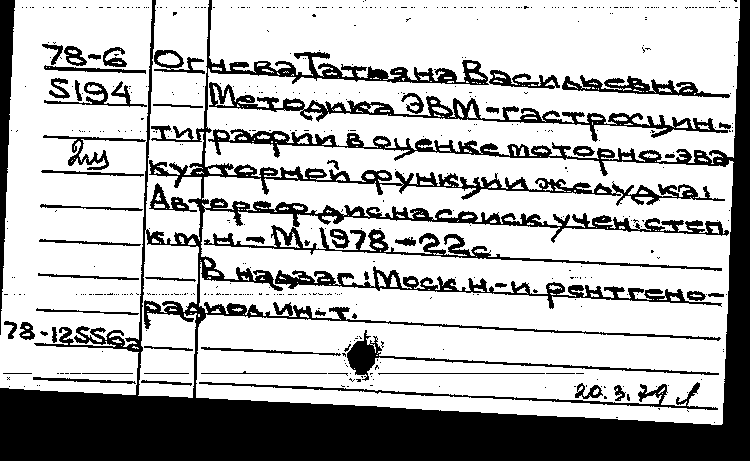 78-6 Огнева, Татьяна Васильевна.
5194 Методика ЭВМ-гастросцин-
тиграфии в оценке моторно-эва-
2м
куаторной функции желудка:
Автореф. дис. на соиск. учен. степ.
к.м.н. - М., 1978. - 22 с.
В надзаг.: Моск. н.-и. рентгено-
радиол. ин-т.
78-12556а
20.3.79